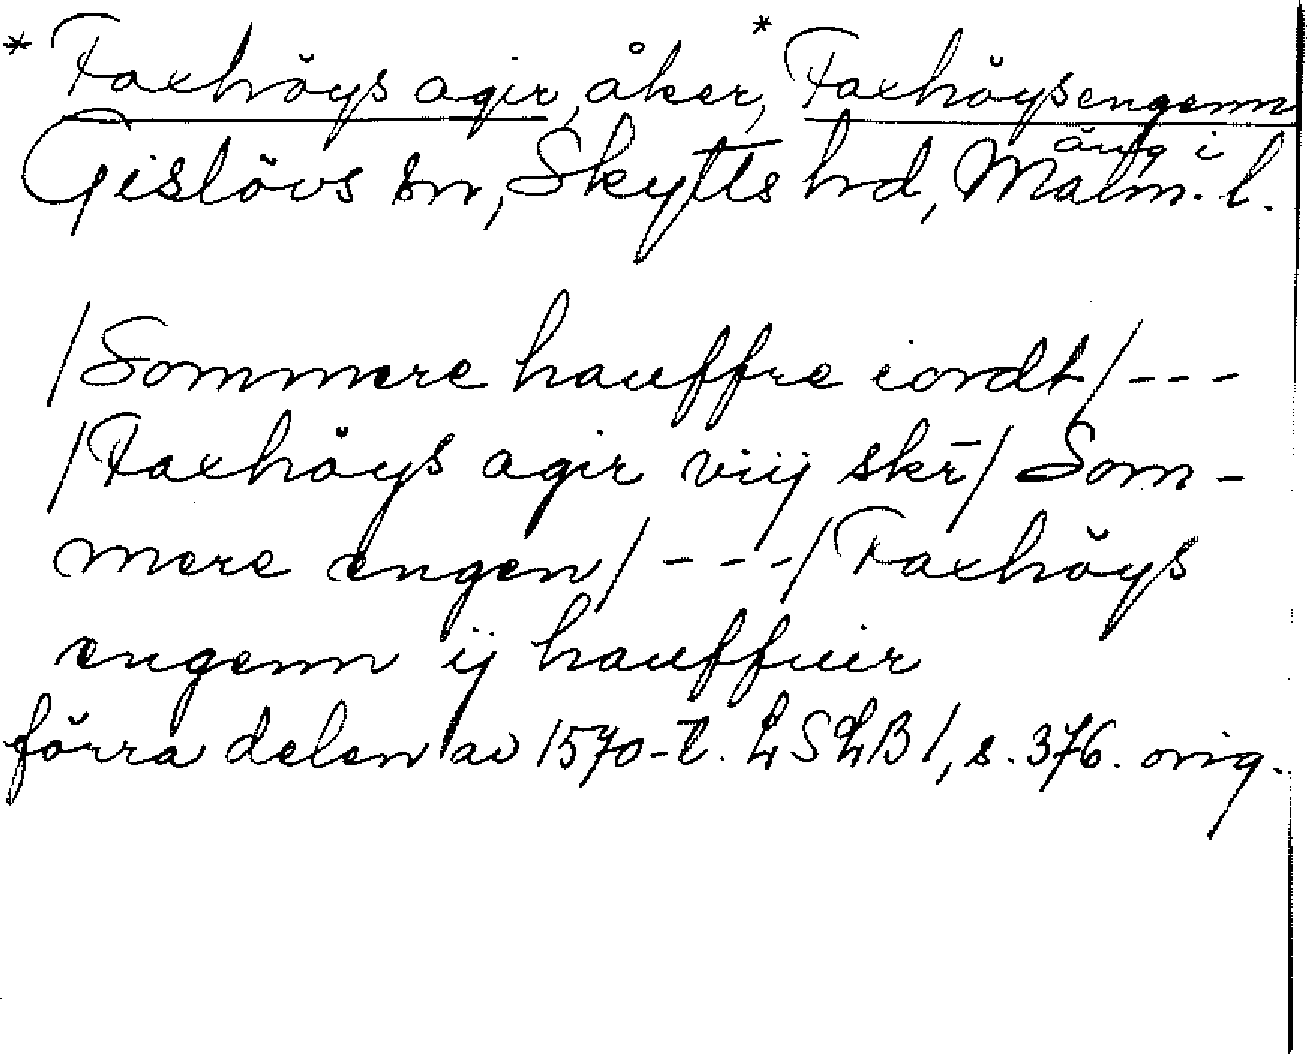 * Faxhöys agir, åker, * Faxhöysengenn
äng i
Gislövs sn, Skytts hd, Malm. l.
/Sommere hauffre iordt/---
/Faxhöys agir viij skr̄/ Som-
mere engen/---/Faxhöys
engenn ij hauffuir
förra delen av 1570-t. LSLB 1, s. 376. orig.